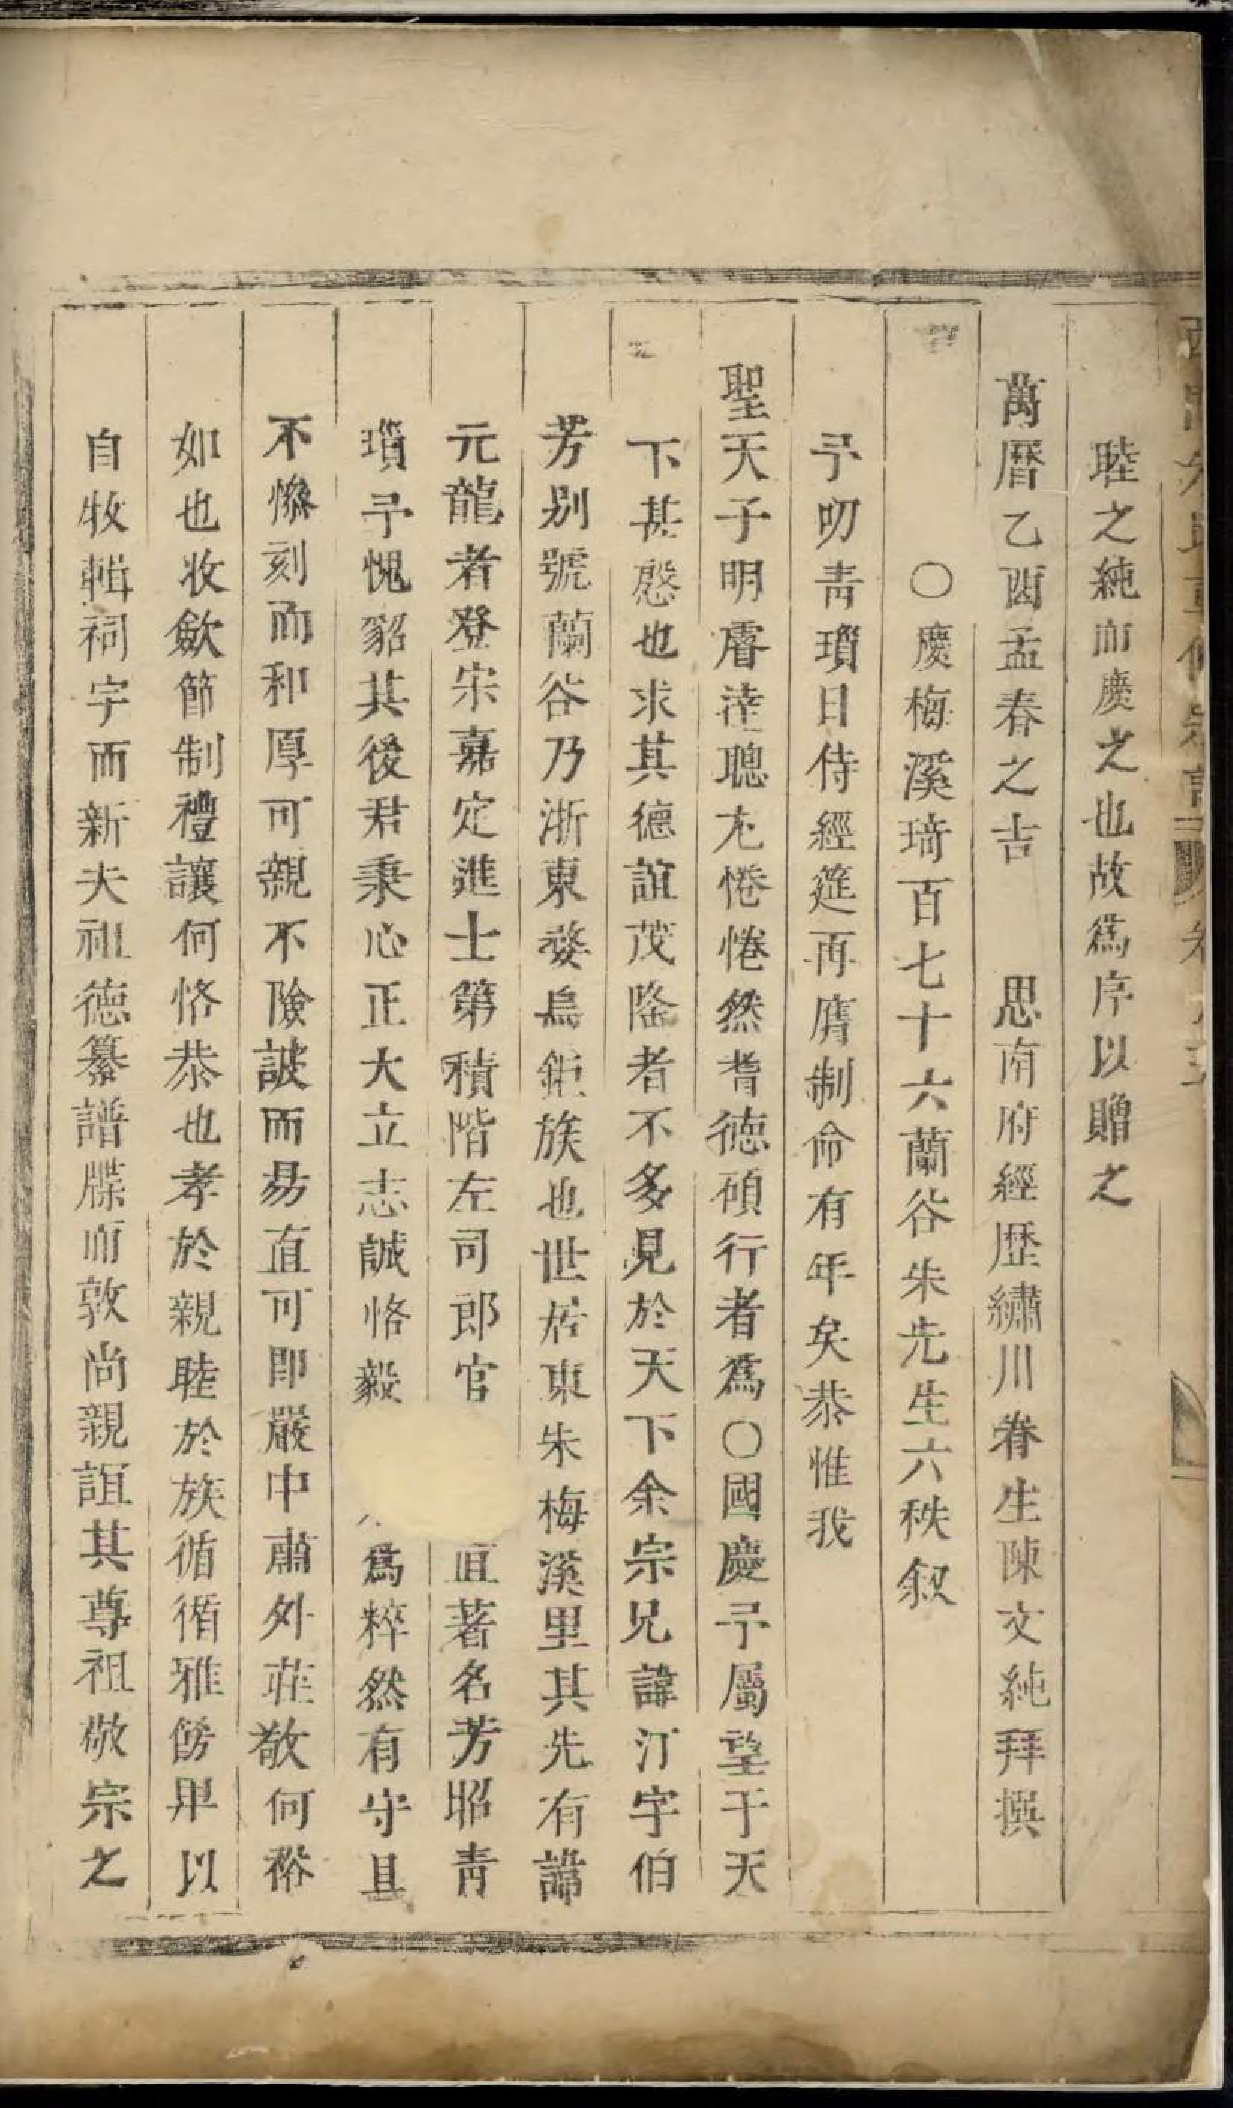 睦之純而慶之也故爲序以贈之
萬曆乙酉孟春之吉　思南府經歷繡川眷生陳文純拜撰
○慶梅溪琦百七十六蘭谷朱先生六秩叙
予叨青瑣日侍經筵再膺制命有年矣恭惟我
聖天子明睿達聰尤惓惓然耆德碩行者爲○國慶予屬望于天
下甚慇也求其德誼茂隆者不多見於天下余宗兄諱汀字伯
芳别號蘭谷乃浙東婺烏鉅族也世居東朱梅溪里其先有諱
元龍者登宋嘉定進士第積階左司郎官直著名芳昭青
瑣予愧貂其後君秉心正大立志誠恪毅爲粹然有守且
不慘刻而和厚可親不險詖而易直可即嚴中肅外莊敬何裕
如也收歛節制禮讓何恪恭也孝於親睦於族循循雅飭卑以
自牧輯祠宇而新夫祖德纂譜牒而敦尚親誼其尊祖敬宗之